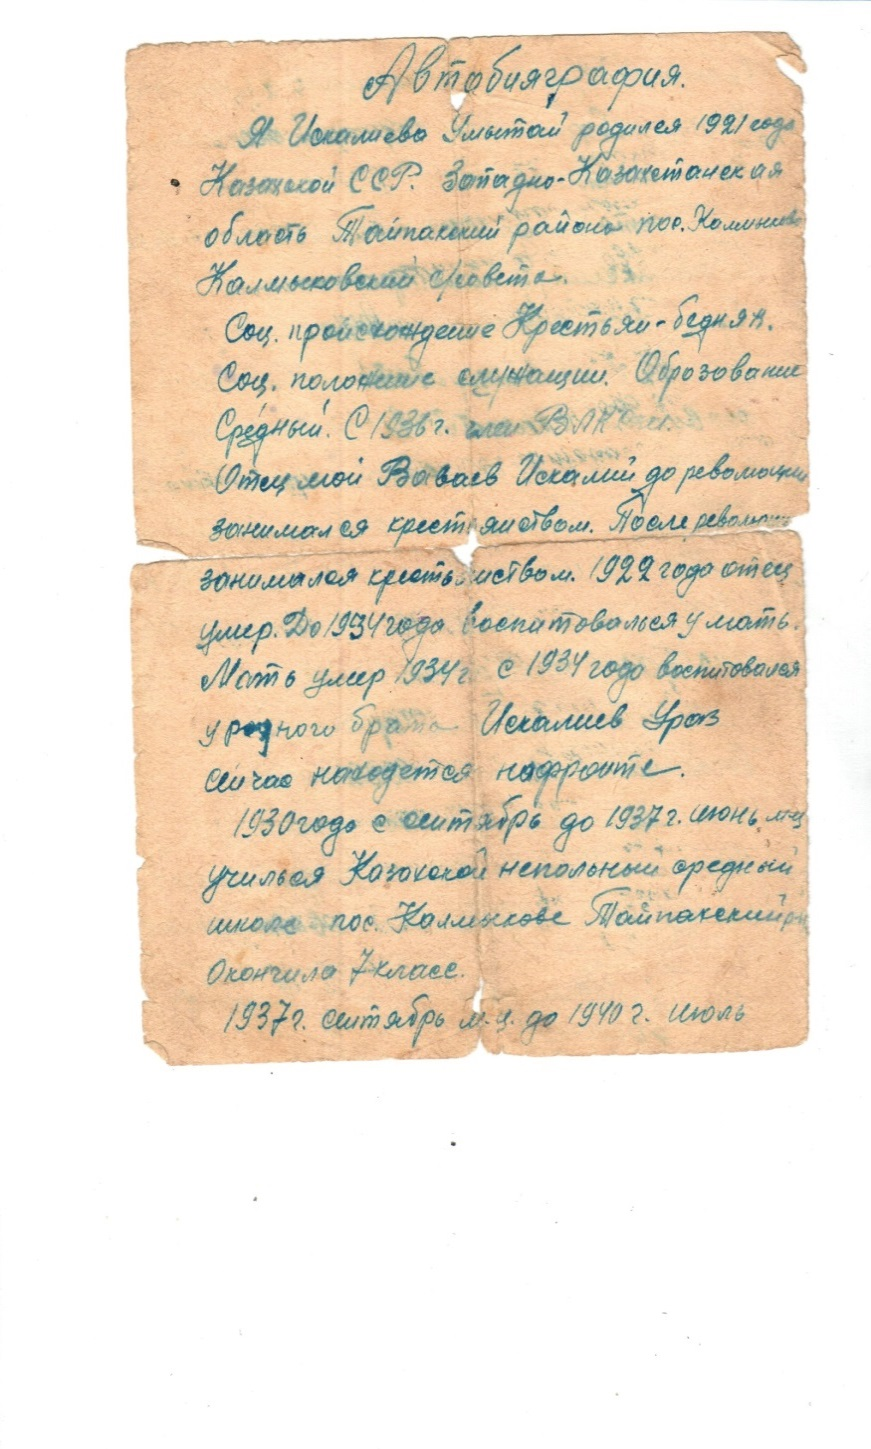 Автобияграфия.
Я Искалиева Умытай родился 1921 года
Казахской ССР. Западно-Казахстанская
область Тайпакский района пос. Калмыково
Калмыковский совета.
Соц. происхождение Крестьян-бедняк.
Соц. положение служащии. Оброзование
Средный. С 1936 г. член ВЛКСМ.
Отец мой Баваев Искалий до революции
занимался крестьянством. После революции
занимался крестьянством. 1922 года отец
умер. До 1934 года воспитовалься у мать.
Мать умер 1934 г. с 1934 года воспитовался
у родного брата Искалиев Ураз
сейчас находется нафронте.
1930 года с сентябрь до 1937 г. июнь м-ц
учился Казохской непольный средный
школе пос. Калмыкове Тайпакский рн
Окончила 7 класс.
1937 г. сентябрь м.ц. до 1940 г. июль